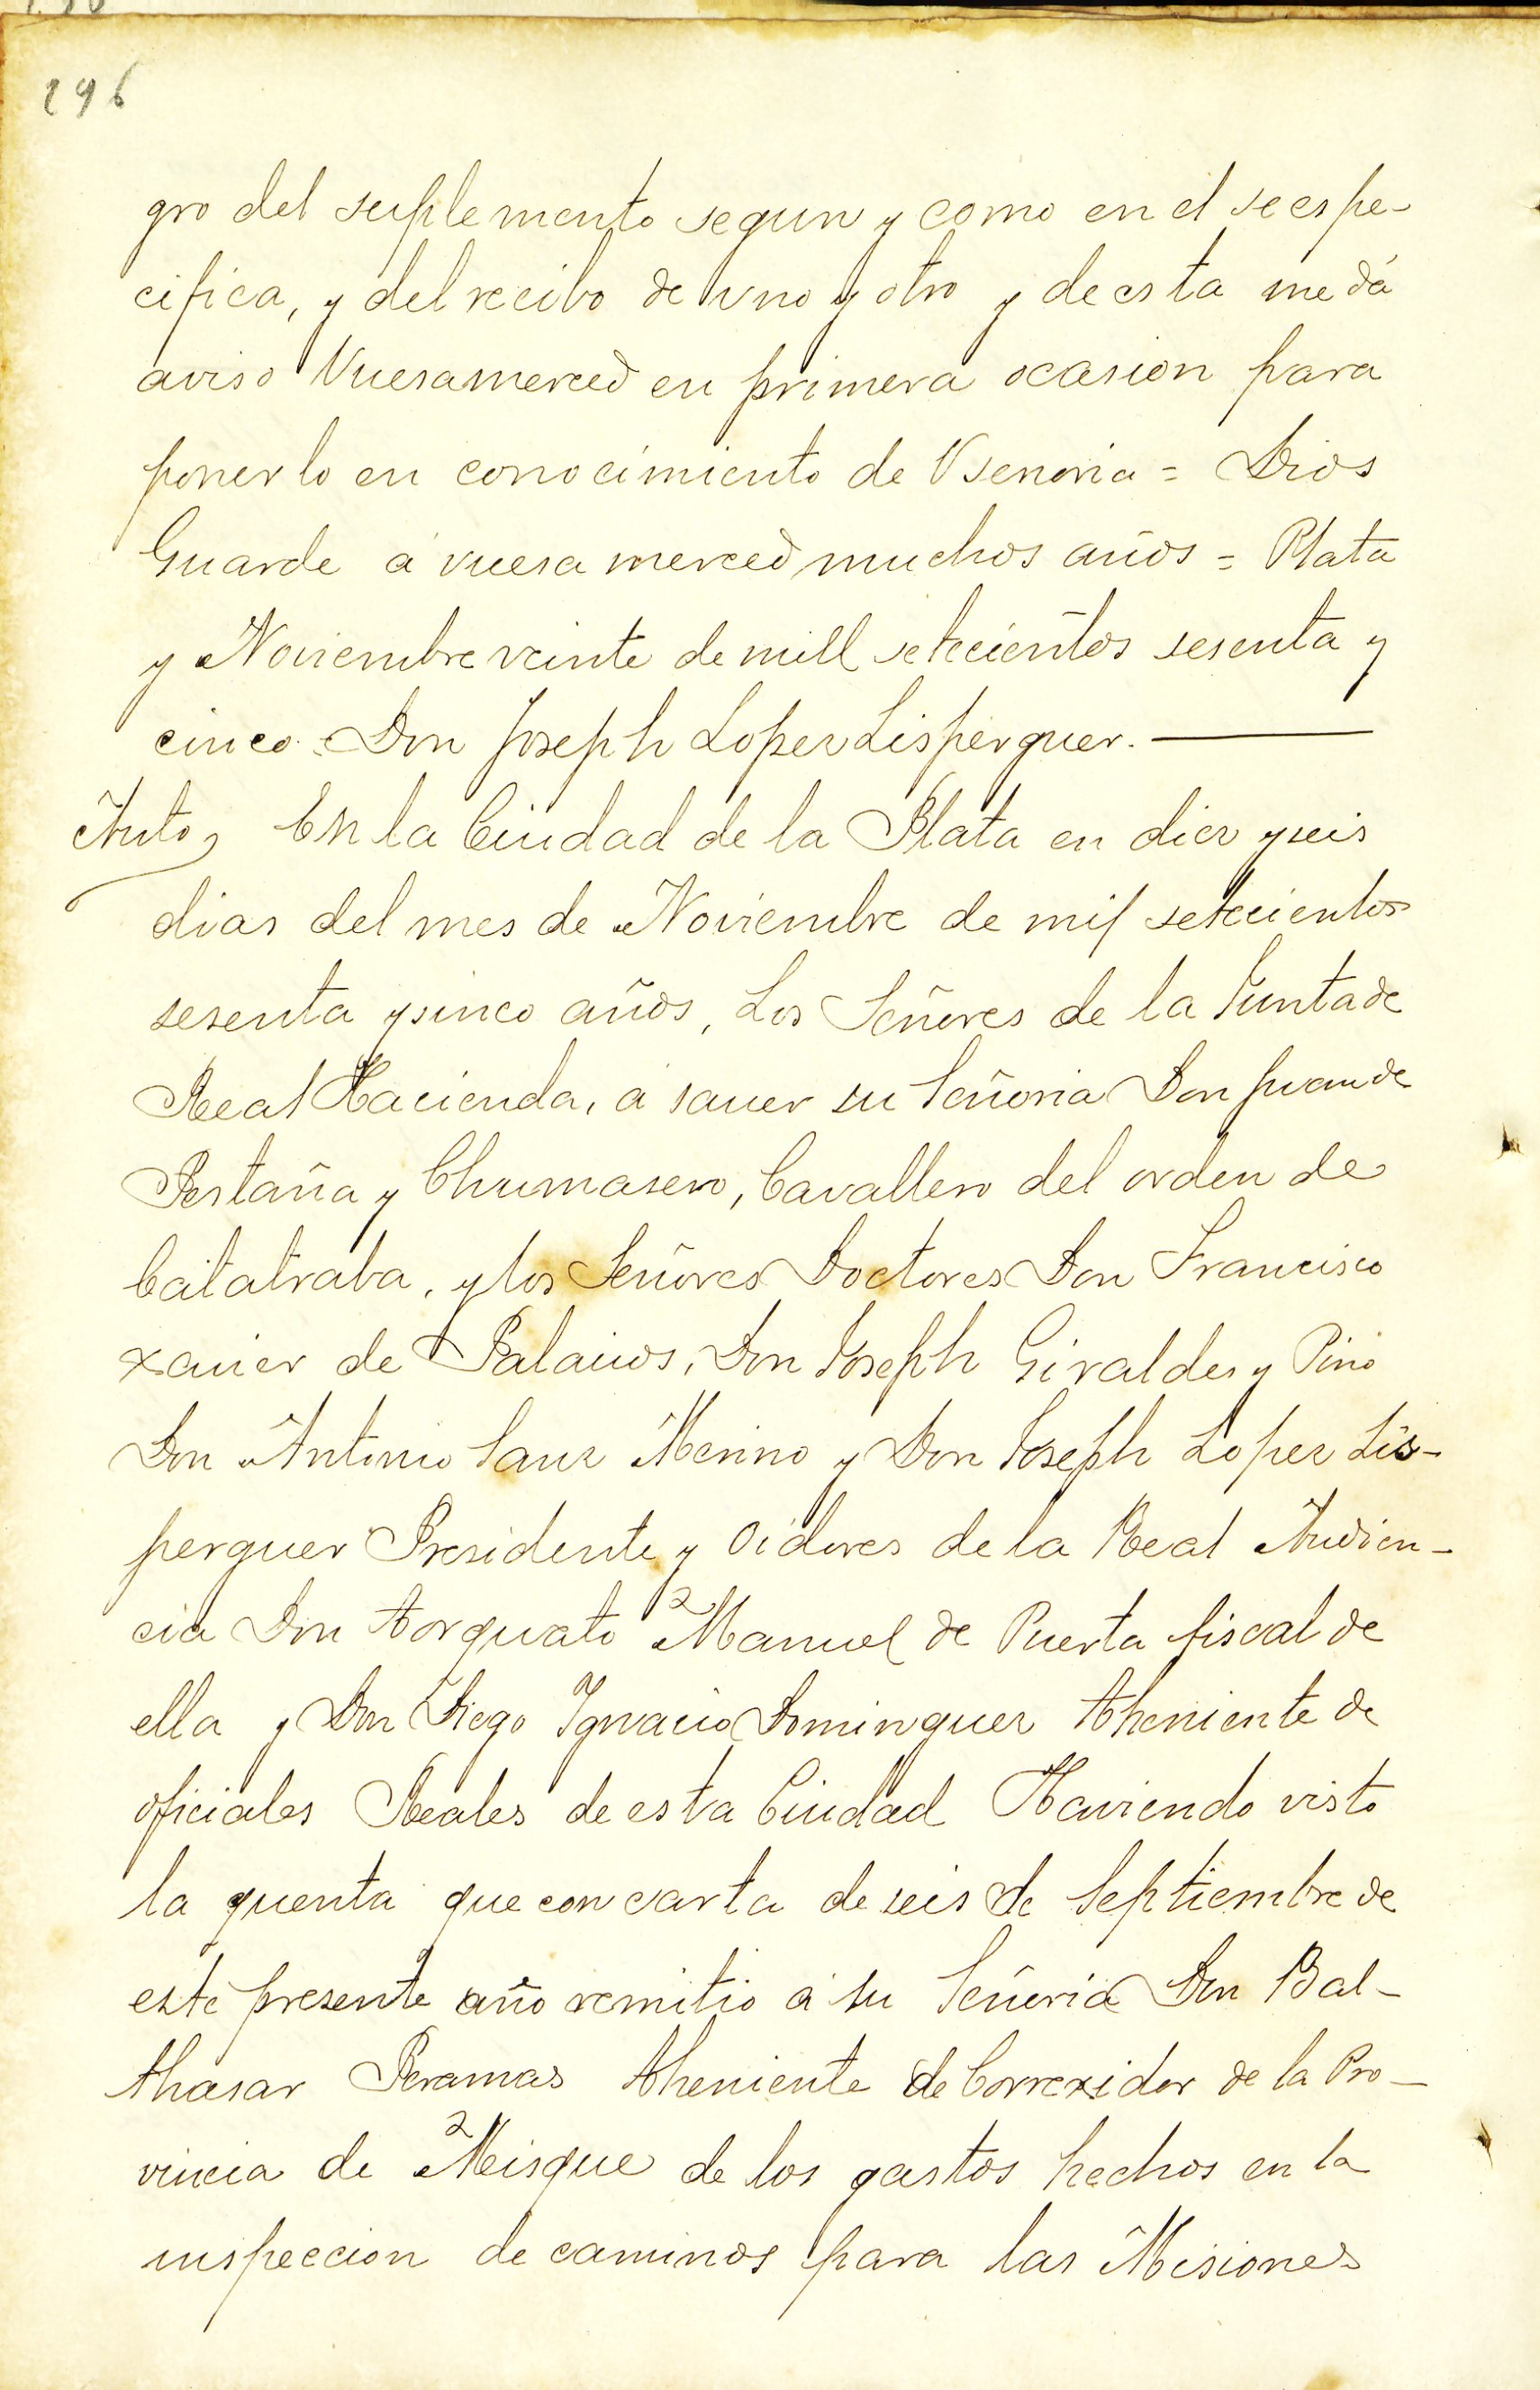 296
gro del suplemento segun y como en el se espe-
cifica, y del recibo de vno y otro y de esta me dá
aviso Vuesamerced en primera ocasion para
ponerlo en conocimiento de Vsenoria = Dios
Guarde á vuesa merced muchos años = Plata
y Noviembre veinte de mill setecientos sesenta y
cinco. Don Joseph Lopez Lisperguer. ———
Auto, En la Ciudad de la Plata en diez y seis
dias del mes de Noviembre de mil setecientos
sesenta y sinco años, Los Señores de la Junta de
Real Hacienda, a saver su Señoria Don Juan de
Pestaña y Chumasero, Cavallero del orden de
Calatraba, y los Señores Doctores Don Francisco
xavier de Palacios, Don Joseph Giraldes y Pino
Don Antonio Sanz Merino y Don Joseph Lopez Lis-
perguer Presidente y Oidores de la Real Audien-
cia Don torquato Manuel de Puerta fiscal de
ella y Don Diego Ygnacio Dominguez theniente de
oficiales Reales de esta Ciudad Haviendo visto
la quenta que con carta de seis de Septiembre de
este presente año remitio á su Señoria Don Bal-
thasar Peramas theniente de Correxidor de la Pro-
vincia de Misque de los gastos hechos en la
inspeccion de caminos para las Misiones